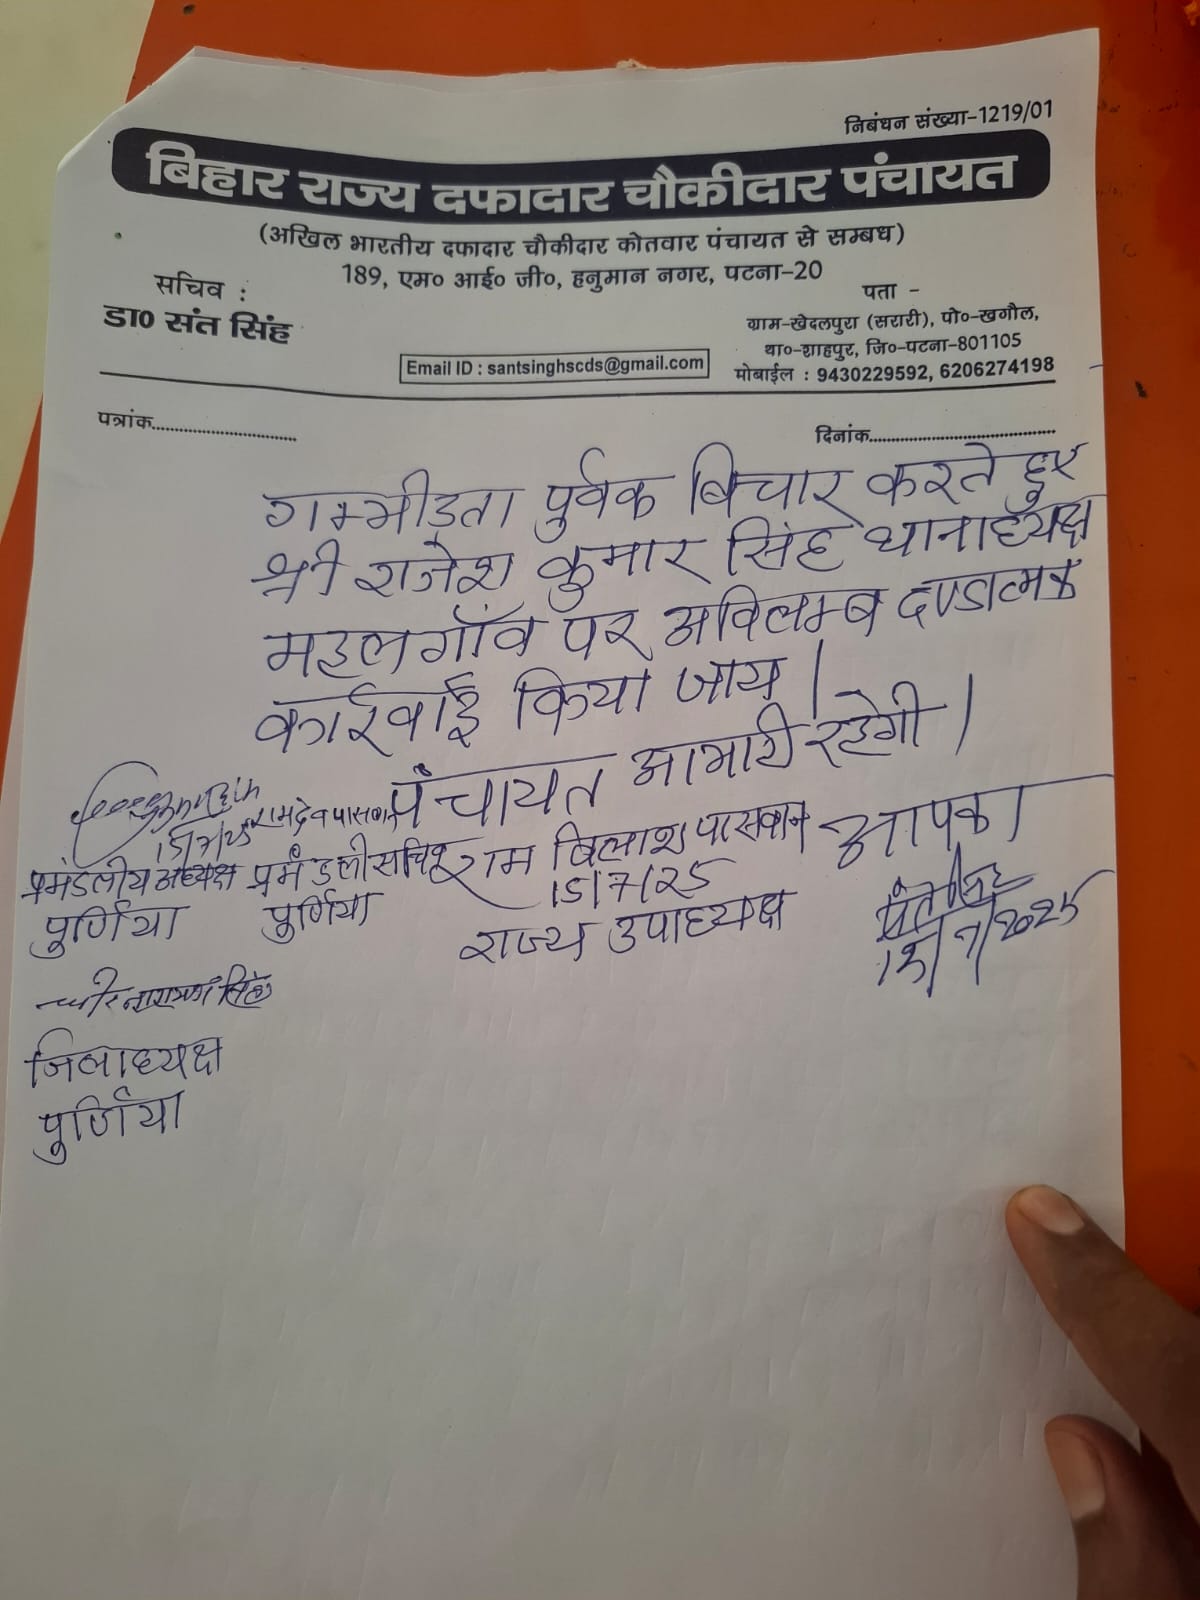 निबंधन संख्या-1219/01
बिहार राज्य दफादार चौकीदार पंचायत
(अखिल भारतीय दफादार चौकीदार कोतवार पंचायत से सम्बध)
189, एम० आई० जी०, हनुमान नगर, पटना-20
सचिव :
डा0 संत सिंह
पता -
ग्राम-खेदलपुरा (सरारी), पो०-खगौल,
था०-शाहपुर, जि०-पटना-801105
मोबाईल : 9430229592, 6206274198
Email ID : santsinghscds@gmail.com
पत्रांक..............................
दिनांक........................................
गम्भीड़ता पुर्वक बिचार करते हुए
श्री राजेश कुमार सिंह थानाध्यक्ष
महलगाँव पर अविलम्ब दण्डात्मक
कार्रवाई किया जाय।
पंचायत आभारी रहेगी।
15/7/25
प्रमंडलीय अध्यक्ष
पुर्णिया
रामदेव पासवान
प्रमंडली सचिव
पुर्णिया
राम बिलाश पासवान
15/7/25
राज्य उपाध्यक्ष
आपका
15/7/2025
नारायण सिंह
जिलाध्यक्ष
पुर्णिया